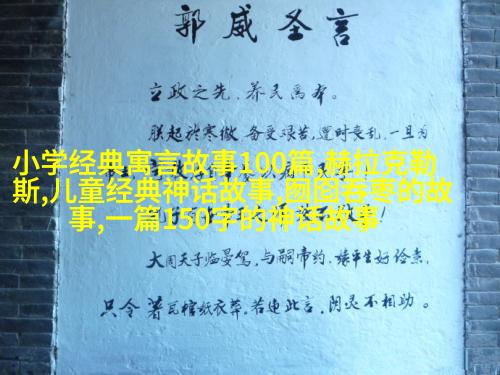 郭威圣言
立政之先，养民为本。
朕起於寒微，备受艰苦，遭时丧乱，一旦为
小学经典寓言故事100篇,赫拉克勒
斯,儿童经典神话故事,囫囵吞枣的故
事,一篇150字的神话故事
大周天子临晏驾，与嗣帝约，缘平生好俭素，
只令著瓦棺纸衣葬。若违此言，阴灵不相助。